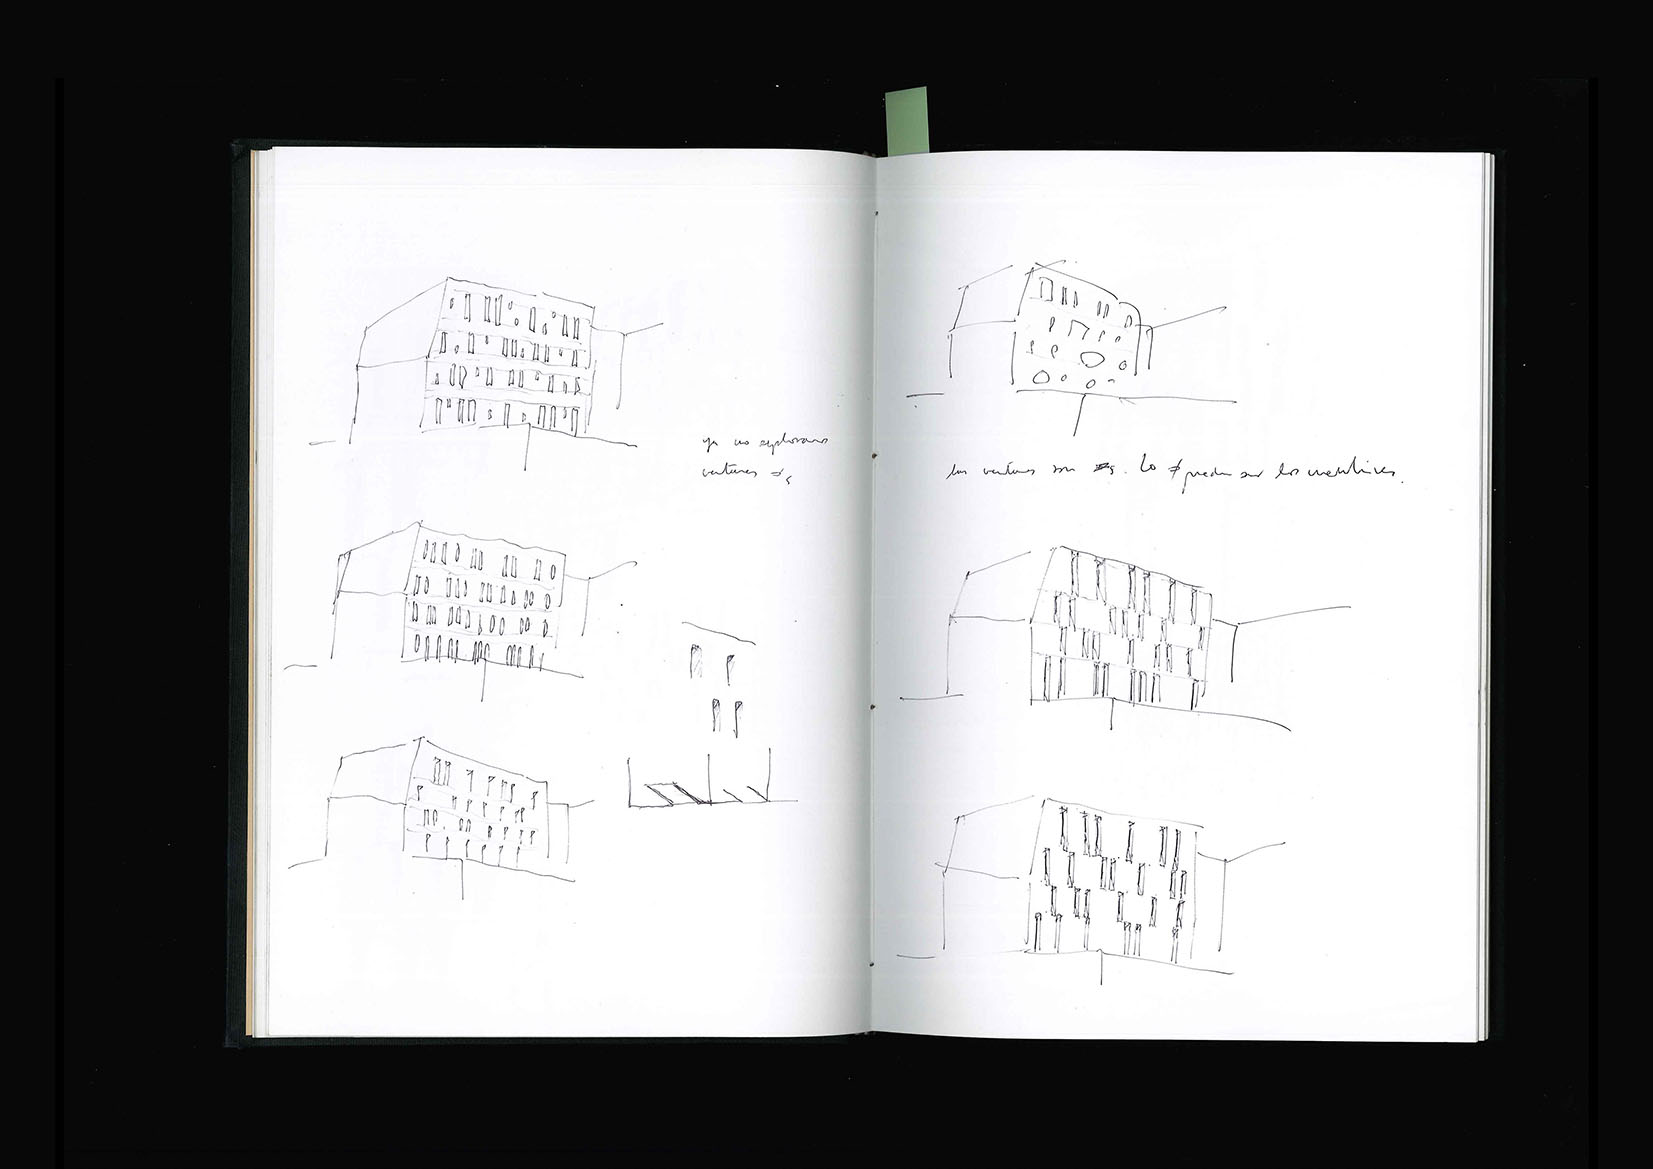 ya no exploramos
ventanas ≠s
las ventanas son =s. Lo ≠ pueden ser los